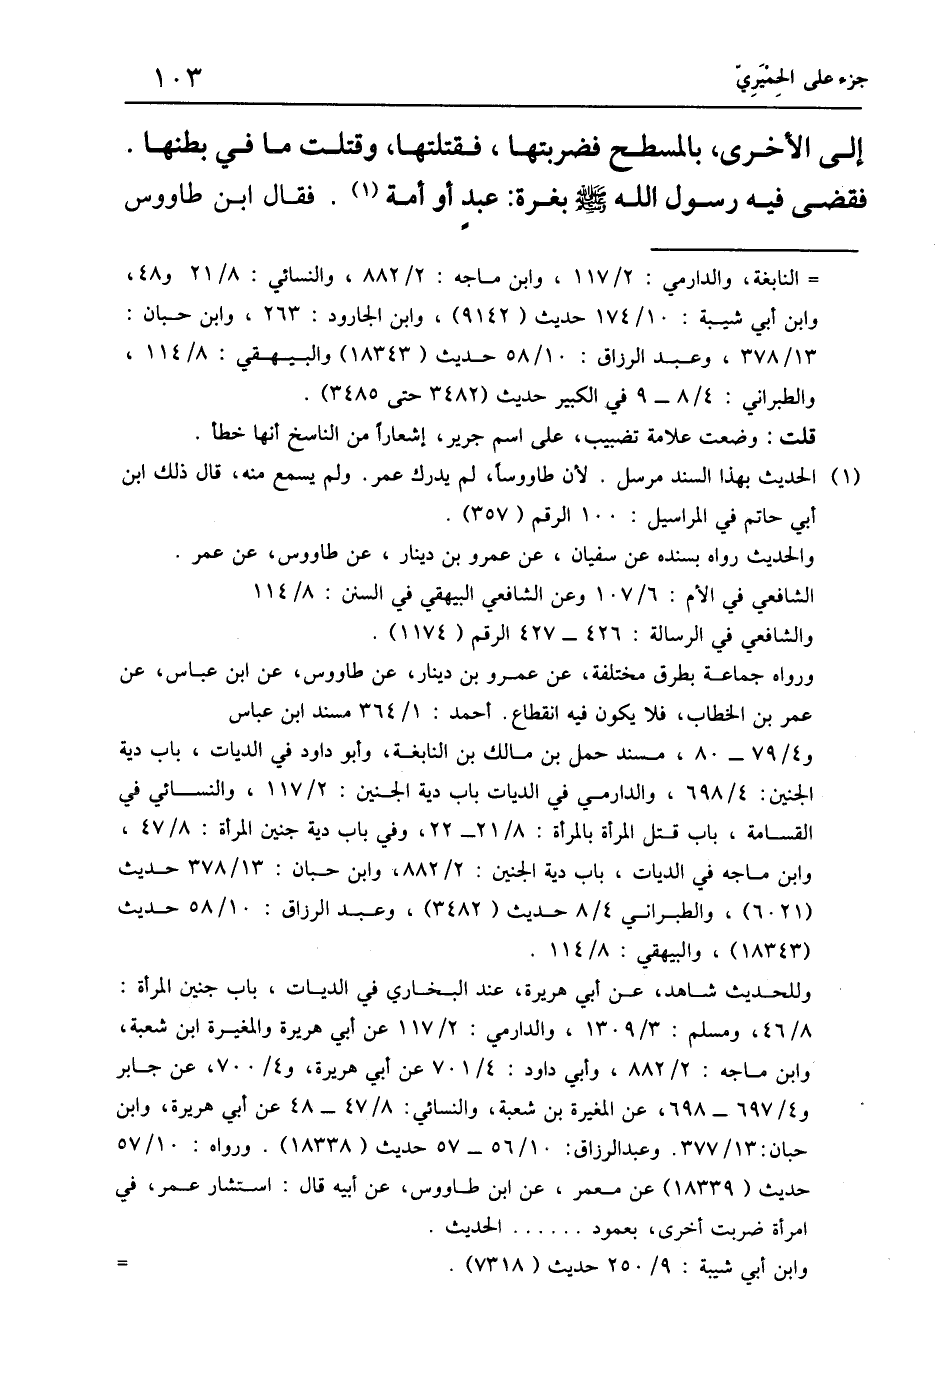 جزء على الحِمْيَرِيّ ١٠٣
إلى الأخرى، بالمسطح فضربتها ، فقتلتها، وقتلت ما في بطنها .
فقضى فيه رسول الله ﷺ بغرة: عبدٍ أو أمة (١) . فقال ابن طاووس
= النابغة، والدارمي : ١١٧/٢ ، وابن ماجه : ٨٨٢/٢ ، والنسائي : ٢١/٨ و٤٨،
وابن أبي شيبة : ١٧٤/١٠ حديث (٩١٤٢) ، وابن الجارود : ٢٦٣ ، وابن حبان :
٣٧٨/١٣ ، وعبد الرزاق : ٥٨/١٠ حديث ( ١٨٣٤٣) والبيهقي : ١١٤/٨ ،
والطبراني : ٨/٤ – ٩ في الكبير حديث (٣٤٨٢ حتى ٣٤٨٥) .
قلت : وضعت علامة تضبيب، على اسم جرير، إشعاراً من الناسخ أنها خطأ .
(١) الحديث بهذا السند مرسل . لأن طاووساً، لم يدرك عمر. ولم يسمع منه، قال ذلك ابن
أبي حاتم في المراسيل : ١٠٠ الرقم ( ٣٥٧) .
والحديث رواه بسنده عن سفيان ، عن عمرو بن دينار ، عن طاووس، عن عمر .
الشافعي في الأم : ١٠٧/٦ وعن الشافعي البيهقي في السنن : ١١٤/٨
والشافعي في الرسالة : ٤٢٦ – ٤٢٧ الرقم ( ١١٧٤) .
ورواه جماعة بطرق مختلفة، عن عمرو بن دينار، عن طاووس، عن ابن عباس، عن
عمر بن الخطاب، فلا يكون فيه انقطاع. أحمد : ٣٦٤/١ مسند ابن عباس
و٧٩/٤ – ٨٠ ، مسند حمل بن مالك بن النابغة، وأبو داود في الديات ، باب دية
الجنين: ٦٩٨/٤ ، والدارمي في الديات باب دية الجنين : ١١٧/٢ ، والنسائي في
القسامة ، باب قتل المرأة بالمرأة : ٢١/٨– ٢٢، وفي باب دية جنين المرأة : ٤٧/٨ ،
وابن ماجه في الديات ، باب دية الجنين : ٨٨٢/٢، وابن حبان : ٣٧٨/١٣ حديث
(٦٠٢١) ، والطبراني ٨/٤ حديث ( ٣٤٨٢) ، وعبد الرزاق : ٥٨/١٠ حديث
(١٨٣٤٣) ، والبيهقي : ١١٤/٨ .
وللحديث شاهد، عن أبي هريرة، عند البخاري في الديات ، باب جنين المرأة :
٤٦/٨، ومسلم : ١٣٠٩/٣ ، والدارمي : ١١٧/٢ عن أبي هريرة والمغيرة ابن شعبة،
وابن ماجه : ٨٨٢/٢ ، وأبي داود : ٧٠١/٤ عن أبي هريرة، و٧٠٠/٤، عن جابر
و٦٩٧/٤ – ٦٩٨، عن المغيرة بن شعبة، والنسائي: ٤٧/٨ – ٤٨ عن أبي هريرة، وابن
حبان:٣٧٧/١٣. وعبدالرزاق: ٥٦/١٠ – ٥٧ حديث ( ١٨٣٣٨) . ورواه : ٥٧/١٠
حديث ( ١٨٣٣٩) عن معمر ، عن ابن طاووس، عن أبيه قال : استشار عمر، في
امرأة ضربت أخرى، بعمود ...... الحديث .
وابن أبي شيبة : ٢٥٠/٩ حديث ( ٧٣١٨) . =